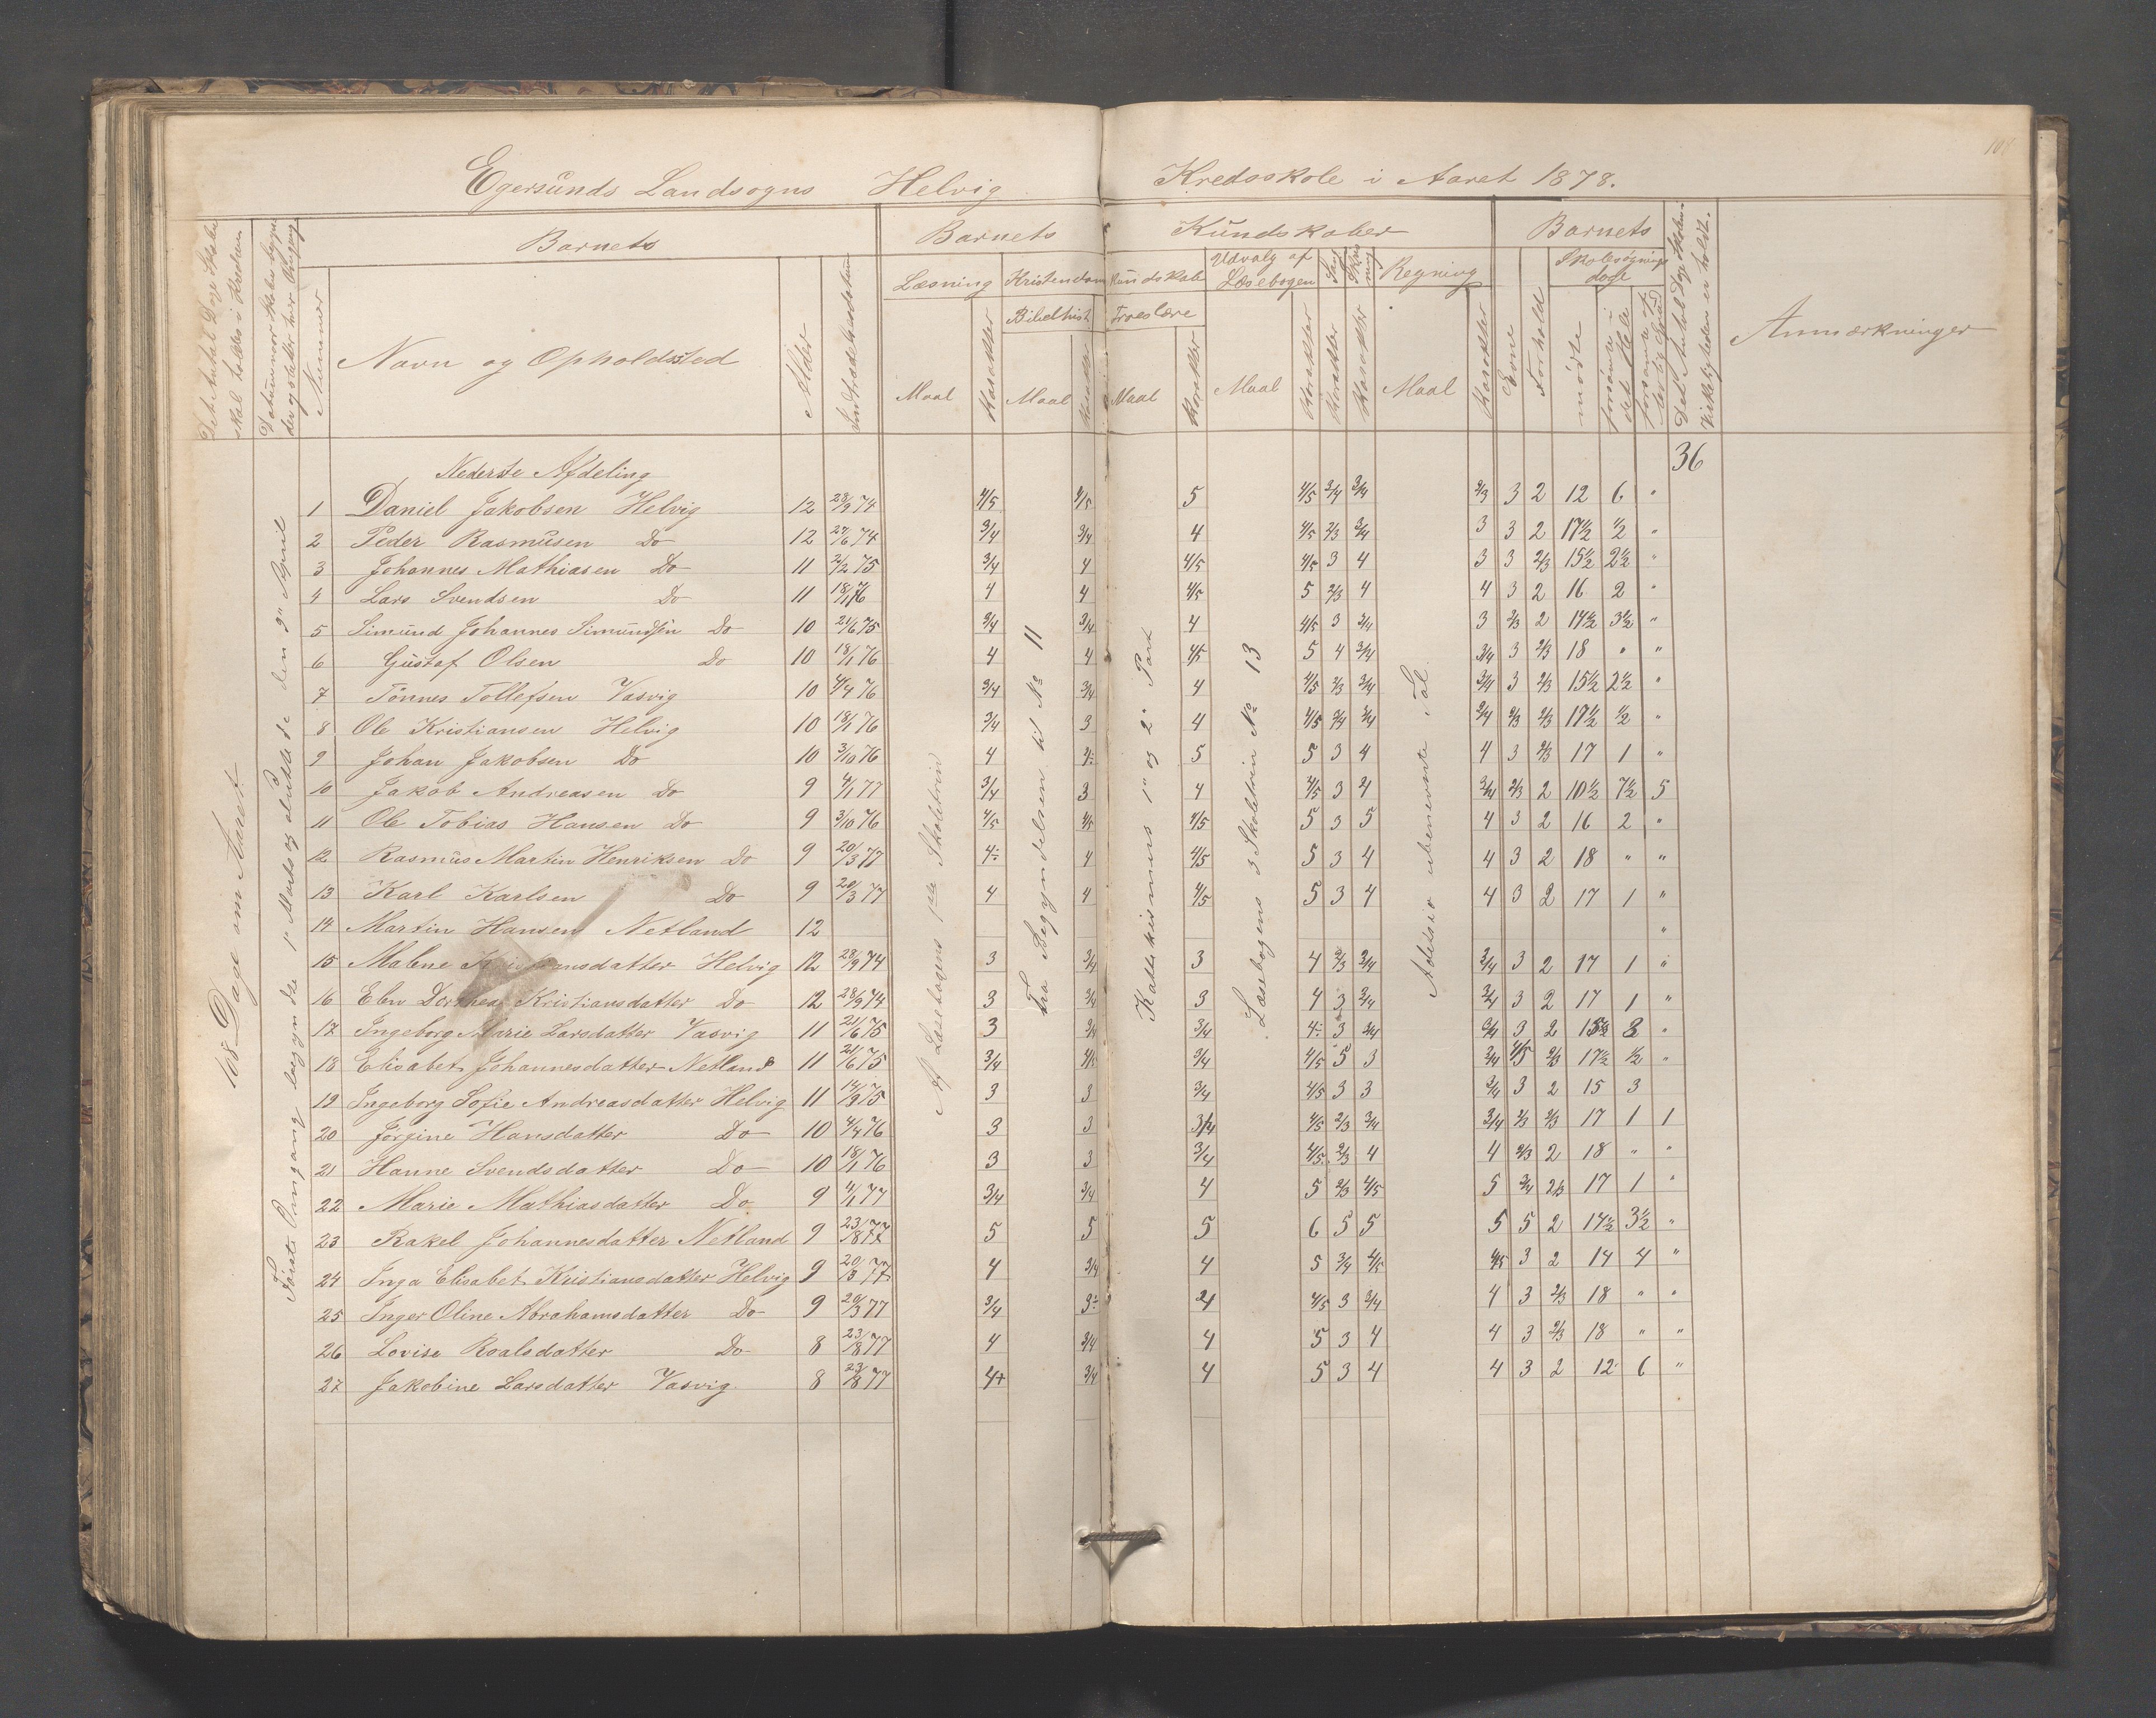 104
Egersunds Landsogns Helvig Kredsskole i Aaret 1878.
Det Antal Dage Skolen skal holdes i Kredsen
Datum naar Skolen begynder og slutter hver Omgang
Nummer
Barnets
Navn og Opholdssted
Alder
Indtrædelsesdatum
Barnets Kundskaber
Læsning
Maal
Karakter
Kristendomskundskab
Bibelhist.
Maal
Karakter
Troeslære
Maal
Karakter
Udvalg af Læsebogen
Maal
Karakter
Sang
Karakter
Skrivning
Karakter
Regning
Maal
Karakter
Barnets
Evne
Forhold
Skolesøgningsdage
mødte
forsømte i det Hele
forsømte af lovlig Grund
Det Antal Dage Skolen i Virkeligheden er holdt.
Anmærkninger
168 Dage om Aaret
Første Omgang begyndte 1ste Marts og sluttede den 9de April
Af Læsebogens 1ste Skoletrin
Fra Begyndelsen til No 11
Katekismus 1ste og 2. Part
Læsebogens 3 Skoletrin No 13
Addisio ubenevnte Tal
36
Nederste Afdeling
1 Daniel Jakobsen Helvig 12 28/9 74 4/5 4/5 5 4/5 3/4 3/4 2/3 3 2 12 6 "
2 Peder Rasmusen Do 12 27/6 74 3/4 3/4 4 4/5 2/3 3/4 3 3 2 17½ ½ "
3 Johannes Mathiasen Do 11 2/2 75 3/4 4 4/5 4/5 3 4 3 3 2/3 15½ 2½ "
4 Lars Svendsen Do 11 18/1 76 4 4 4/5 5 2/3 4 4 3 2 16 2 "
5 Simund Johannes Simundsen Do 10 21/6 75 3/4 3/4 4 4/5 3 3/4 3 2/3 2 14½ 3½ "
6 Gustaf Olsen Do 10 18/1 76 4 4 4/5 5 4 3/4 3/4 3 2/3 18 " "
7 Tønnes Tollefsen Vasvig 10 4/4 76 3/4 3/4 4 4/5 2/3 3/4 3/4 3 2/3 15½ 2½ "
8 Ole Kristiansen Helvig 10 18/1 76 3/4 3 4 4/5 3/4 3/4 3/4 2/3 2/3 17½ ½ "
9 Johan Jakobsen Do 10 3/10 76 4 4÷ 5 5 3 4 4 3 2/3 17 1 "
10 Jakob Andreasen Do 9 4/1 77 3/4 3 4 4/5 3 4 3/4 2/3 2 10½ 7½ 5
11 Ole Tobias Hansen Do 9 3/10 76 4/5 4/5 4/5 5 3 5 4 3 2 16 2 "
12 Rasmus Martin Henriksen Do 9 20/3 77 4÷ 4 4/5 5 3 4 4 3 2 18 " "
13 Karl Karlsen Do 9 20/3 77 4 4 4/5 5 3 4 4 3 2 17 1 "
14 Martin Hansen Netland 12 "
15 Malene Kristiansdatter Helvig 12 28/9 74 3 3/4 3 4 2/3 3/4 3/4 3 2 17 1 "
16 Elen Dorthea Kristiansdatter Do 12 28/9 74 3 3/4 3 4 3 3/4 3/4 3 2 17 1 "
17 Ingeborg Marie Larsdatter Vasvig 11 21/6 75 3 3/4 3/4 4÷ 3 3/4 3/4 3 2 8 "
18 Elisabet Johannesdatter Netland 11 21/6 75 3/4 4/5 3/4 4/5 5 3 3/4 4/5 2/3 17½ ½ "
19 Ingeborg Sofie Andreasdatter Helvig 11 14/9 75 3 3 3/4 4/5 3 3 3/4 3 2 15 3
20 Jørgine Hansdatter Do 10 4/4 76 3 3 3/4 4/5 2/3 3/4 3/4 2/3 2/3 17 1 1
21 Hanne Svendsdatter Do 10 18/1 76 3 3 3/4 4/5 2/3 4 4 2/3 2 18 " "
22 Marie Mathiasdatter Do 9 4/1 77 3/4 3/4 4 5 2/3 4/5 5 3/4 2/3 17 1 "
23 Rakel Johannesdatter Netland 9 23/8 77 5 5 5 6 5 5 5 5 2 14½ 3½ "
24 Inga Elisabet Kristiansdatter Helvig 9 20/3 77 4 3/4 4 5 3/4 4/5 4/5 3 2 14 4 "
25 Inger Oline Abrahamsdatter Do 9 20/3 77 3/4 3÷ 4 4/5 3 3/4 4 3 2/3 18 " "
26 Lovise Roalsdatter Do 8 23/8 77 4 3/4 4 5 3 4 4 3 2/3 18 " "
27 Jakobine Larsdatter Vasvig 8 23/8 77 4+ 3/4 4 5 3 4 4 3 2 12 6 "